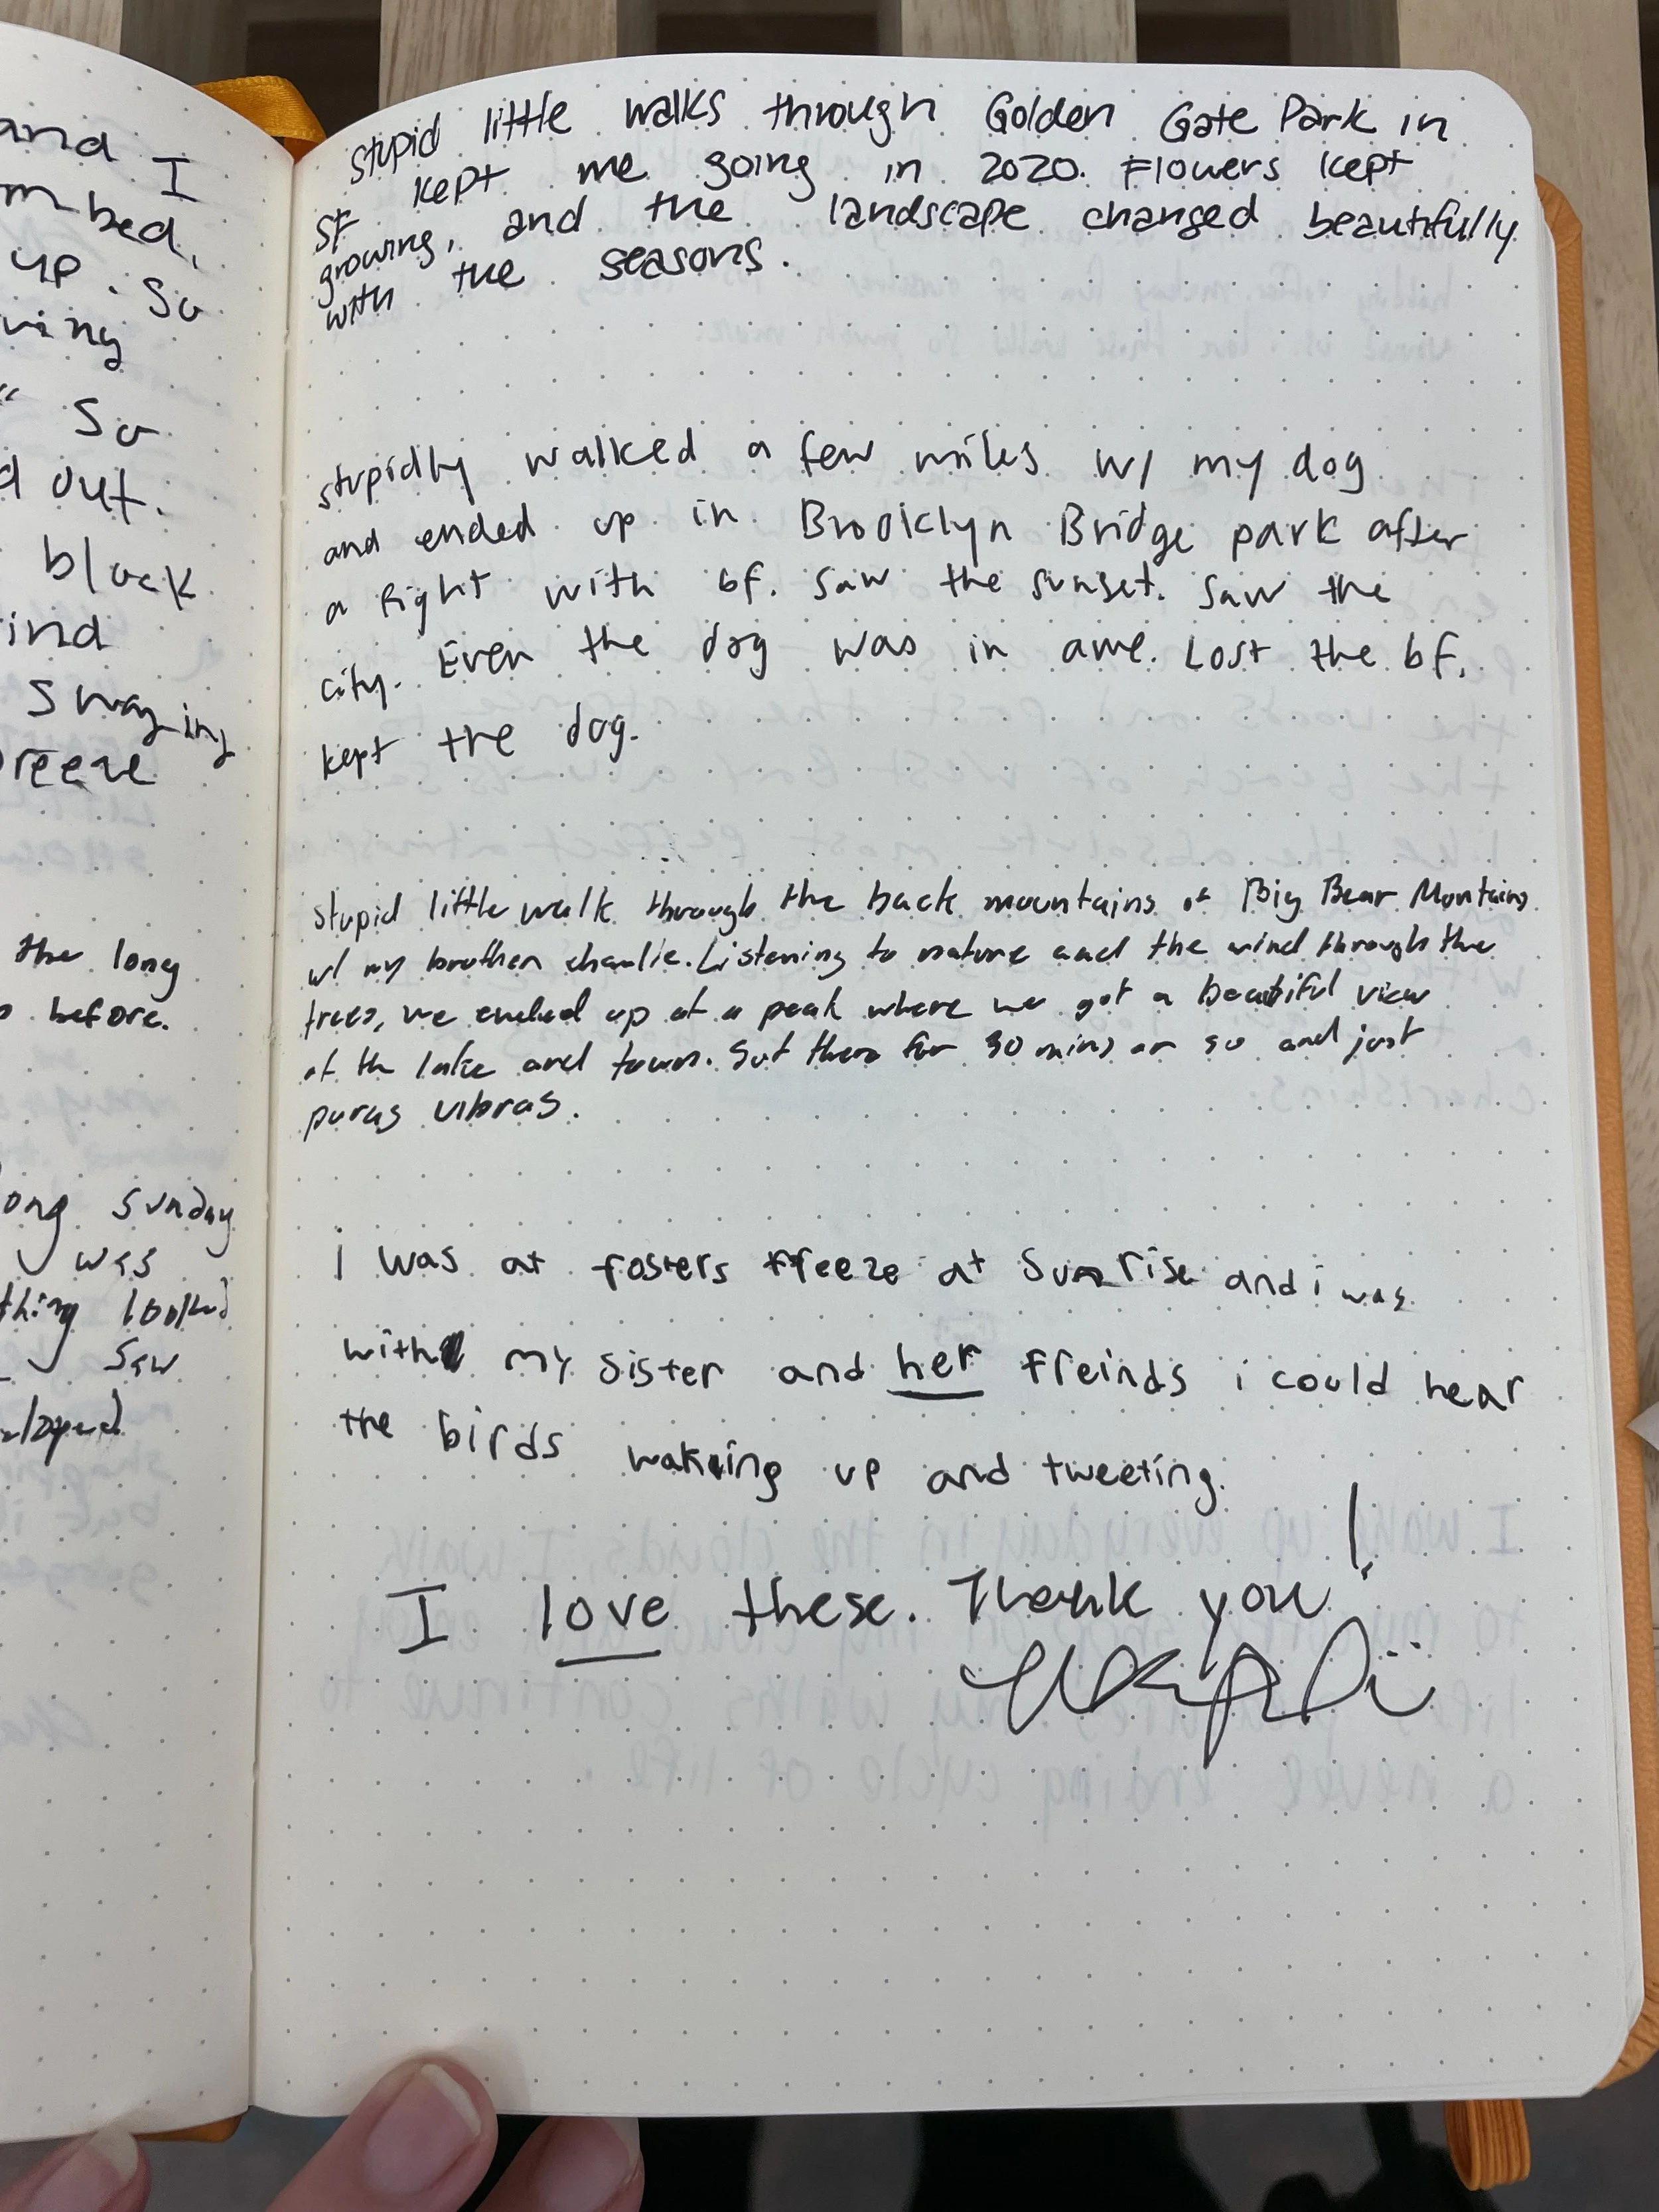 and I
bed,
up. So
" So
out.
block
swaying
the long
before.
Sunday
was
thing looked
saw
stupid little walks through Golden Gate Park in
SF kept me going in 2020. Flowers kept
growing, and the landscape changed beautifully
with the seasons.
stupidly walked a few miles w/ my dog
and ended up in Brooklyn Bridge park after
a fight with bf. Saw the sunset. Saw the
city. Even the dog was in awe. Lost the bf.
kept the dog.
stupid little walk through the back mountains of Big Bear Montains
w/ my brother charlie. Listening to nature and the wind through the
trees, we ended up at a peak where we got a beautiful view
of the lake and town. Sat there for 30 mins or so and just
puras vibras.
i was at fosters freeze at Sunrise and i was
with my sister and her freinds i could hear
the birds wakeing up and tweeting.
I love these. Thank you!